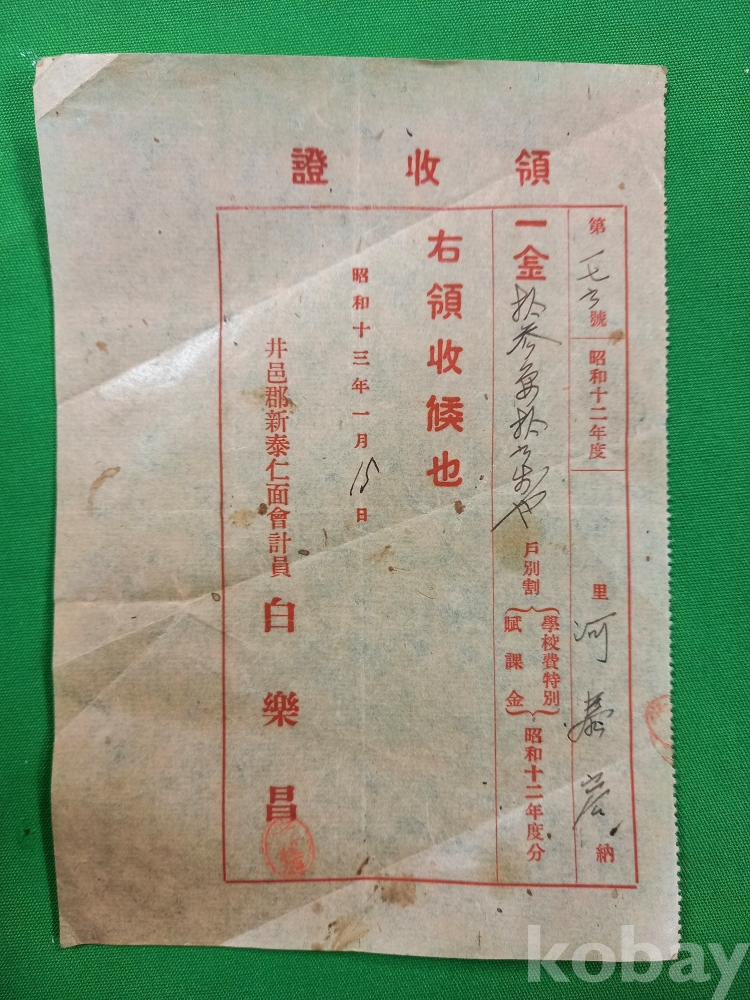 領收證
第一七六號 昭和十二年度 里 河泰宏 納
一金拾參圓拾六戋也 戶別割 學校費特別賦課金 昭和十二年度分
右領收候也
昭和十三年一月15日
井邑郡新泰仁面會計員 白樂昌
kobay